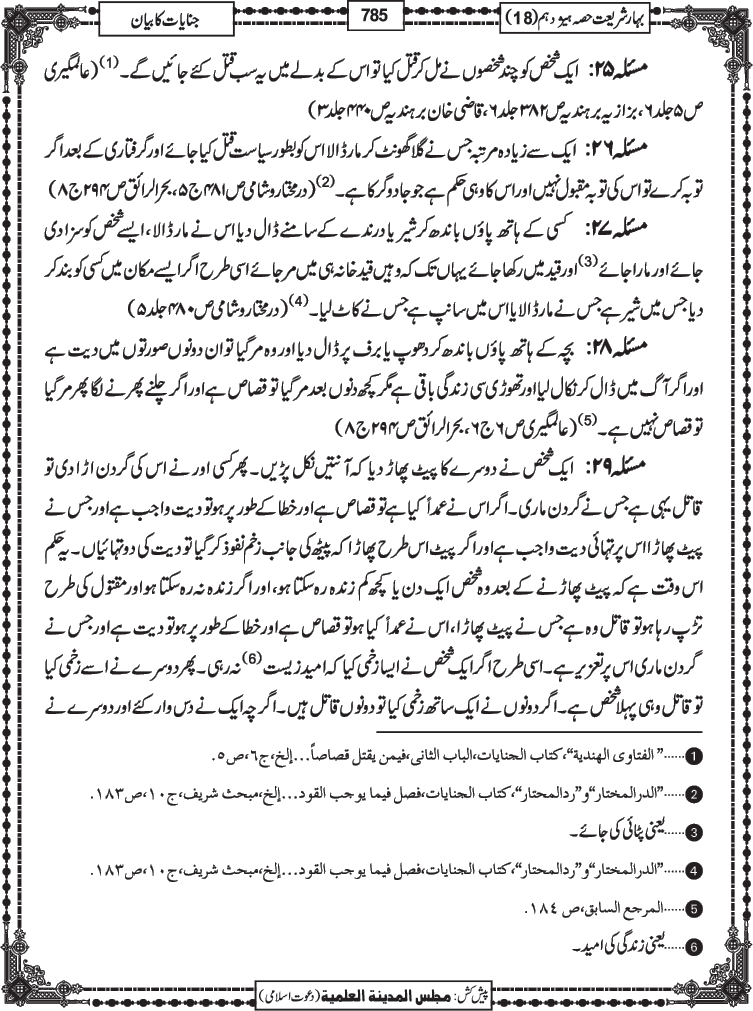 بہار شریعت حصہ ہیژدہم (18)
785
جنایات کا بیان
مسئلہ ۲۵: ایک شخص کو چند شخصوں نے مل کر قتل کیا تو اس کے بدلے میں یہ سب قتل کئے جائیں گے۔(1) (عالمگیری
ص۵ جلد۶، بزازیہ بر ہندیہ ص۳۸۲ جلد۶، قاضی خان بر ہندیہ ص۴۴۰ جلد۳)
مسئلہ ۲۶: ایک سے زیادہ مرتبہ جس نے گلا گھونٹ کر مار ڈالا اس کو بطور سیاست قتل کیا جائے اور گرفتاری کے بعد اگر
توبہ کرے تو اس کی توبہ مقبول نہیں اور اس کا وہی حکم ہے جو جادوگر کا ہے۔(2) (درمختار و شامی ص۴۸۱ ج۵، بحر الرائق ص۲۹۴ ج۸)
مسئلہ ۲۷: کسی کے ہاتھ پاؤں باندھ کر شیر یا درندے کے سامنے ڈال دیا اس نے مار ڈالا، ایسے شخص کو سزا دی
جائے اور مارا جائے(3) اور قید میں رکھا جائے یہاں تک کہ وہیں قید خانہ ہی میں مر جائے اسی طرح اگر ایسے مکان میں کسی کو بند کر
دیا جس میں شیر ہے جس نے مار ڈالا یا اس میں سانپ ہے جس نے کاٹ لیا۔(4) (درمختار و شامی ص۴۸۰ جلد۵)
مسئلہ ۲۸: بچہ کے ہاتھ پاؤں باندھ کر دھوپ یا برف پر ڈال دیا اور وہ مر گیا تو ان دونوں صورتوں میں دیت ہے
اور اگر آگ میں ڈال کر نکال لیا اور تھوڑی سی زندگی باقی ہے مگر کچھ دنوں بعد مر گیا تو قصاص ہے اور اگر چلنے پھرنے لگا پھر مر گیا
تو قصاص نہیں ہے۔(5) (عالمگیری ص۶ ج۶، بحر الرائق ص۲۹۴ ج۸)
مسئلہ ۲۹: ایک شخص نے دوسرے کا پیٹ پھاڑ دیا کہ آنتیں نکل پڑیں۔ پھر کسی اور نے اس کی گردن اڑا دی تو
قاتل یہی ہے جس نے گردن ماری۔ اگر اس نے عمداً کیا ہے تو قصاص ہے اور خطا کے طور پر ہو تو دیت واجب ہے اور جس نے
پیٹ پھاڑا اس پر تہائی دیت واجب ہے اور اگر پیٹ اس طرح پھاڑا کہ پیٹھ کی جانب زخم نفوذ کر گیا تو دیت کی دو تہائیاں۔ یہ حکم
اس وقت ہے کہ پیٹ پھاڑنے کے بعد وہ شخص ایک دن یا کچھ کم زندہ رہ سکتا ہو، اور اگر زندہ نہ رہ سکتا ہو اور مقتول کی طرح
تڑپ رہا ہو تو قاتل وہ ہے جس نے پیٹ پھاڑا، اس نے عمداً کیا ہو تو قصاص ہے اور خطا کے طور پر ہو تو دیت ہے اور جس نے
گردن ماری اس پر تعزیر ہے۔ اسی طرح اگر ایک شخص نے ایسا زخمی کیا کہ امید زیست(6) نہ رہی۔ پھر دوسرے نے اسے زخمی کیا
تو قاتل وہی پہلا شخص ہے۔ اگر دونوں نے ایک ساتھ زخمی کیا تو دونوں قاتل ہیں۔ اگرچہ ایک نے دس وار کئے اور دوسرے نے
1 ......"الفتاوی الهندية"، كتاب الجنايات، الباب الثانی، فیمن یقتل قصاصاً...إلخ، ج٦، ص٥.
2 ......"الدرالمختار" و "ردالمحتار"، كتاب الجنايات، فصل فيما يوجب القود...إلخ، مبحث شريف، ج١٠، ص١٨٣.
3 ......یعنی پٹائی کی جائے۔
4 ......"الدرالمختار" و "ردالمحتار"، كتاب الجنايات، فصل فيما يوجب القود...إلخ، مبحث شريف، ج١٠، ص١٨٣.
5 ......المرجع السابق، ص ١٨٤.
6 ......یعنی زندگی کی امید۔
پیش کش: مجلس المدينة العلمية (دعوت اسلامی)